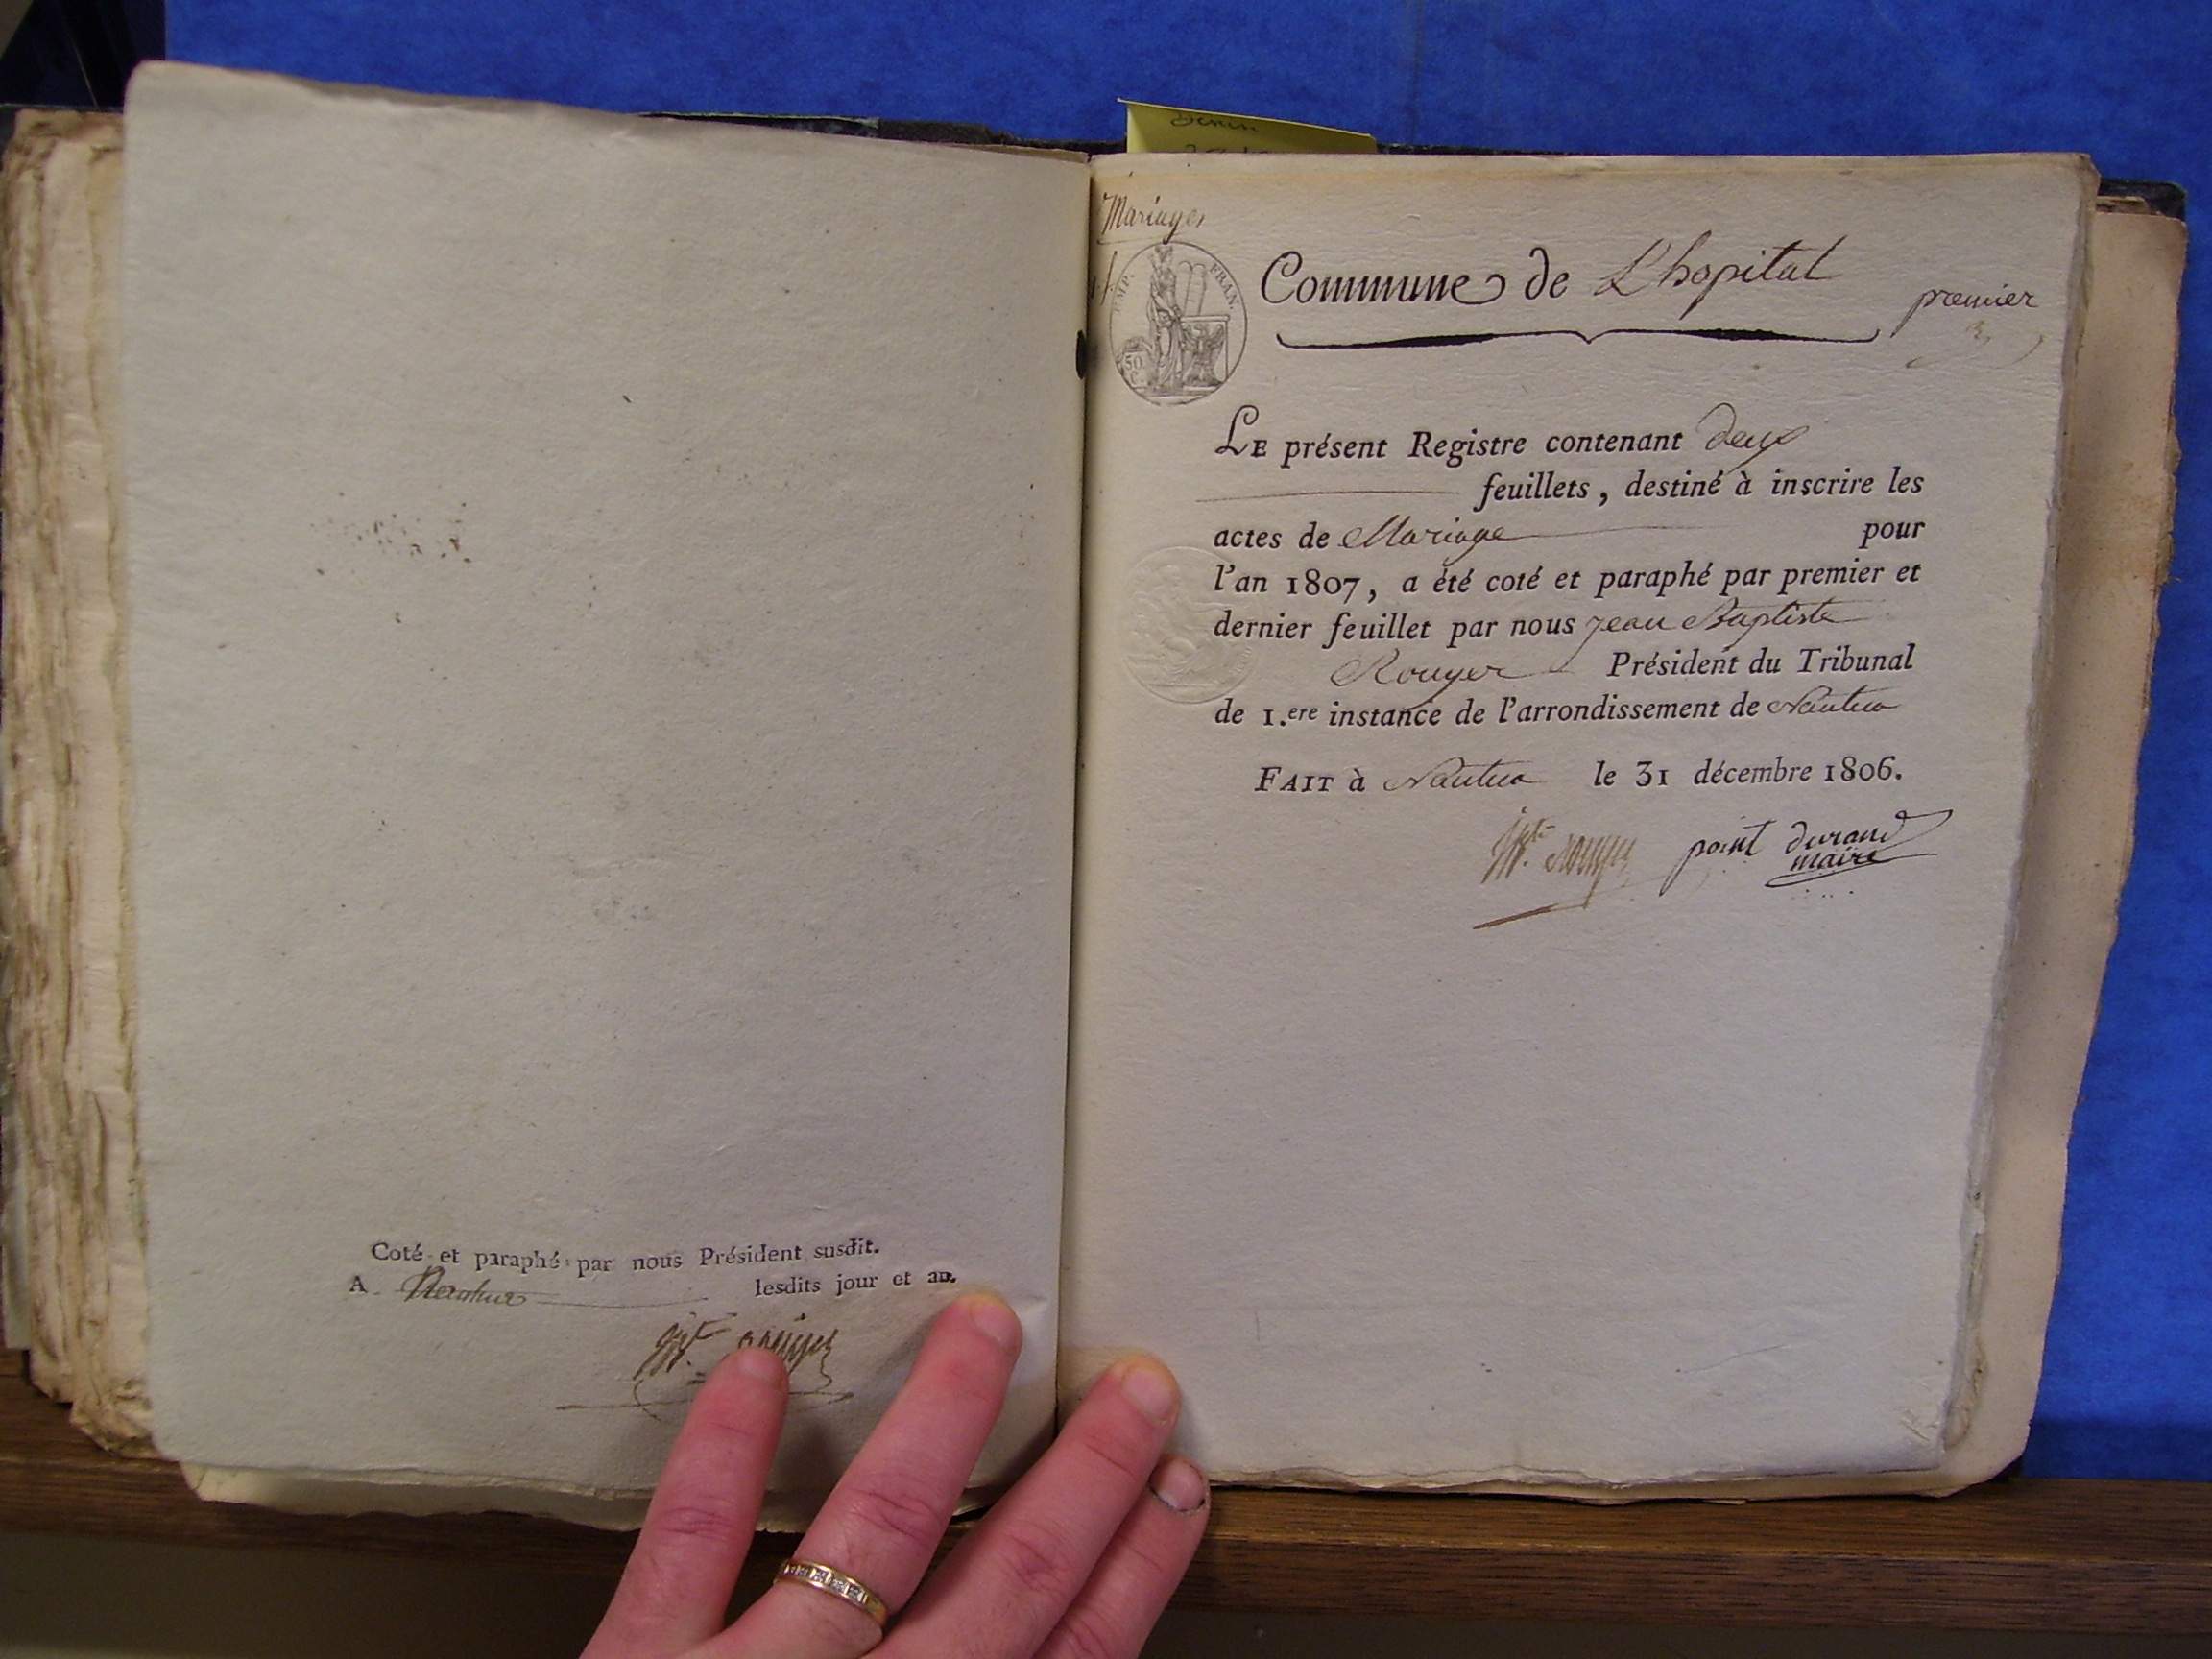 Coté et paraphé par nous Président susdit.
A Nantua lesdits jour et an.
Mariages
IMP. FRAN.
50 c
Commune de L'hopital
premier
LE présent Registre contenant deux
feuillets, destiné à inscrire les
actes de Mariage pour
l'an 1807, a été coté et paraphé par premier et
dernier feuillet par nous jean Baptiste
Rouyer Président du Tribunal
de 1.ere instance de l'arrondissement de Nantua
FAIT à Nantua le 31 décembre 1806.
point durand
maire